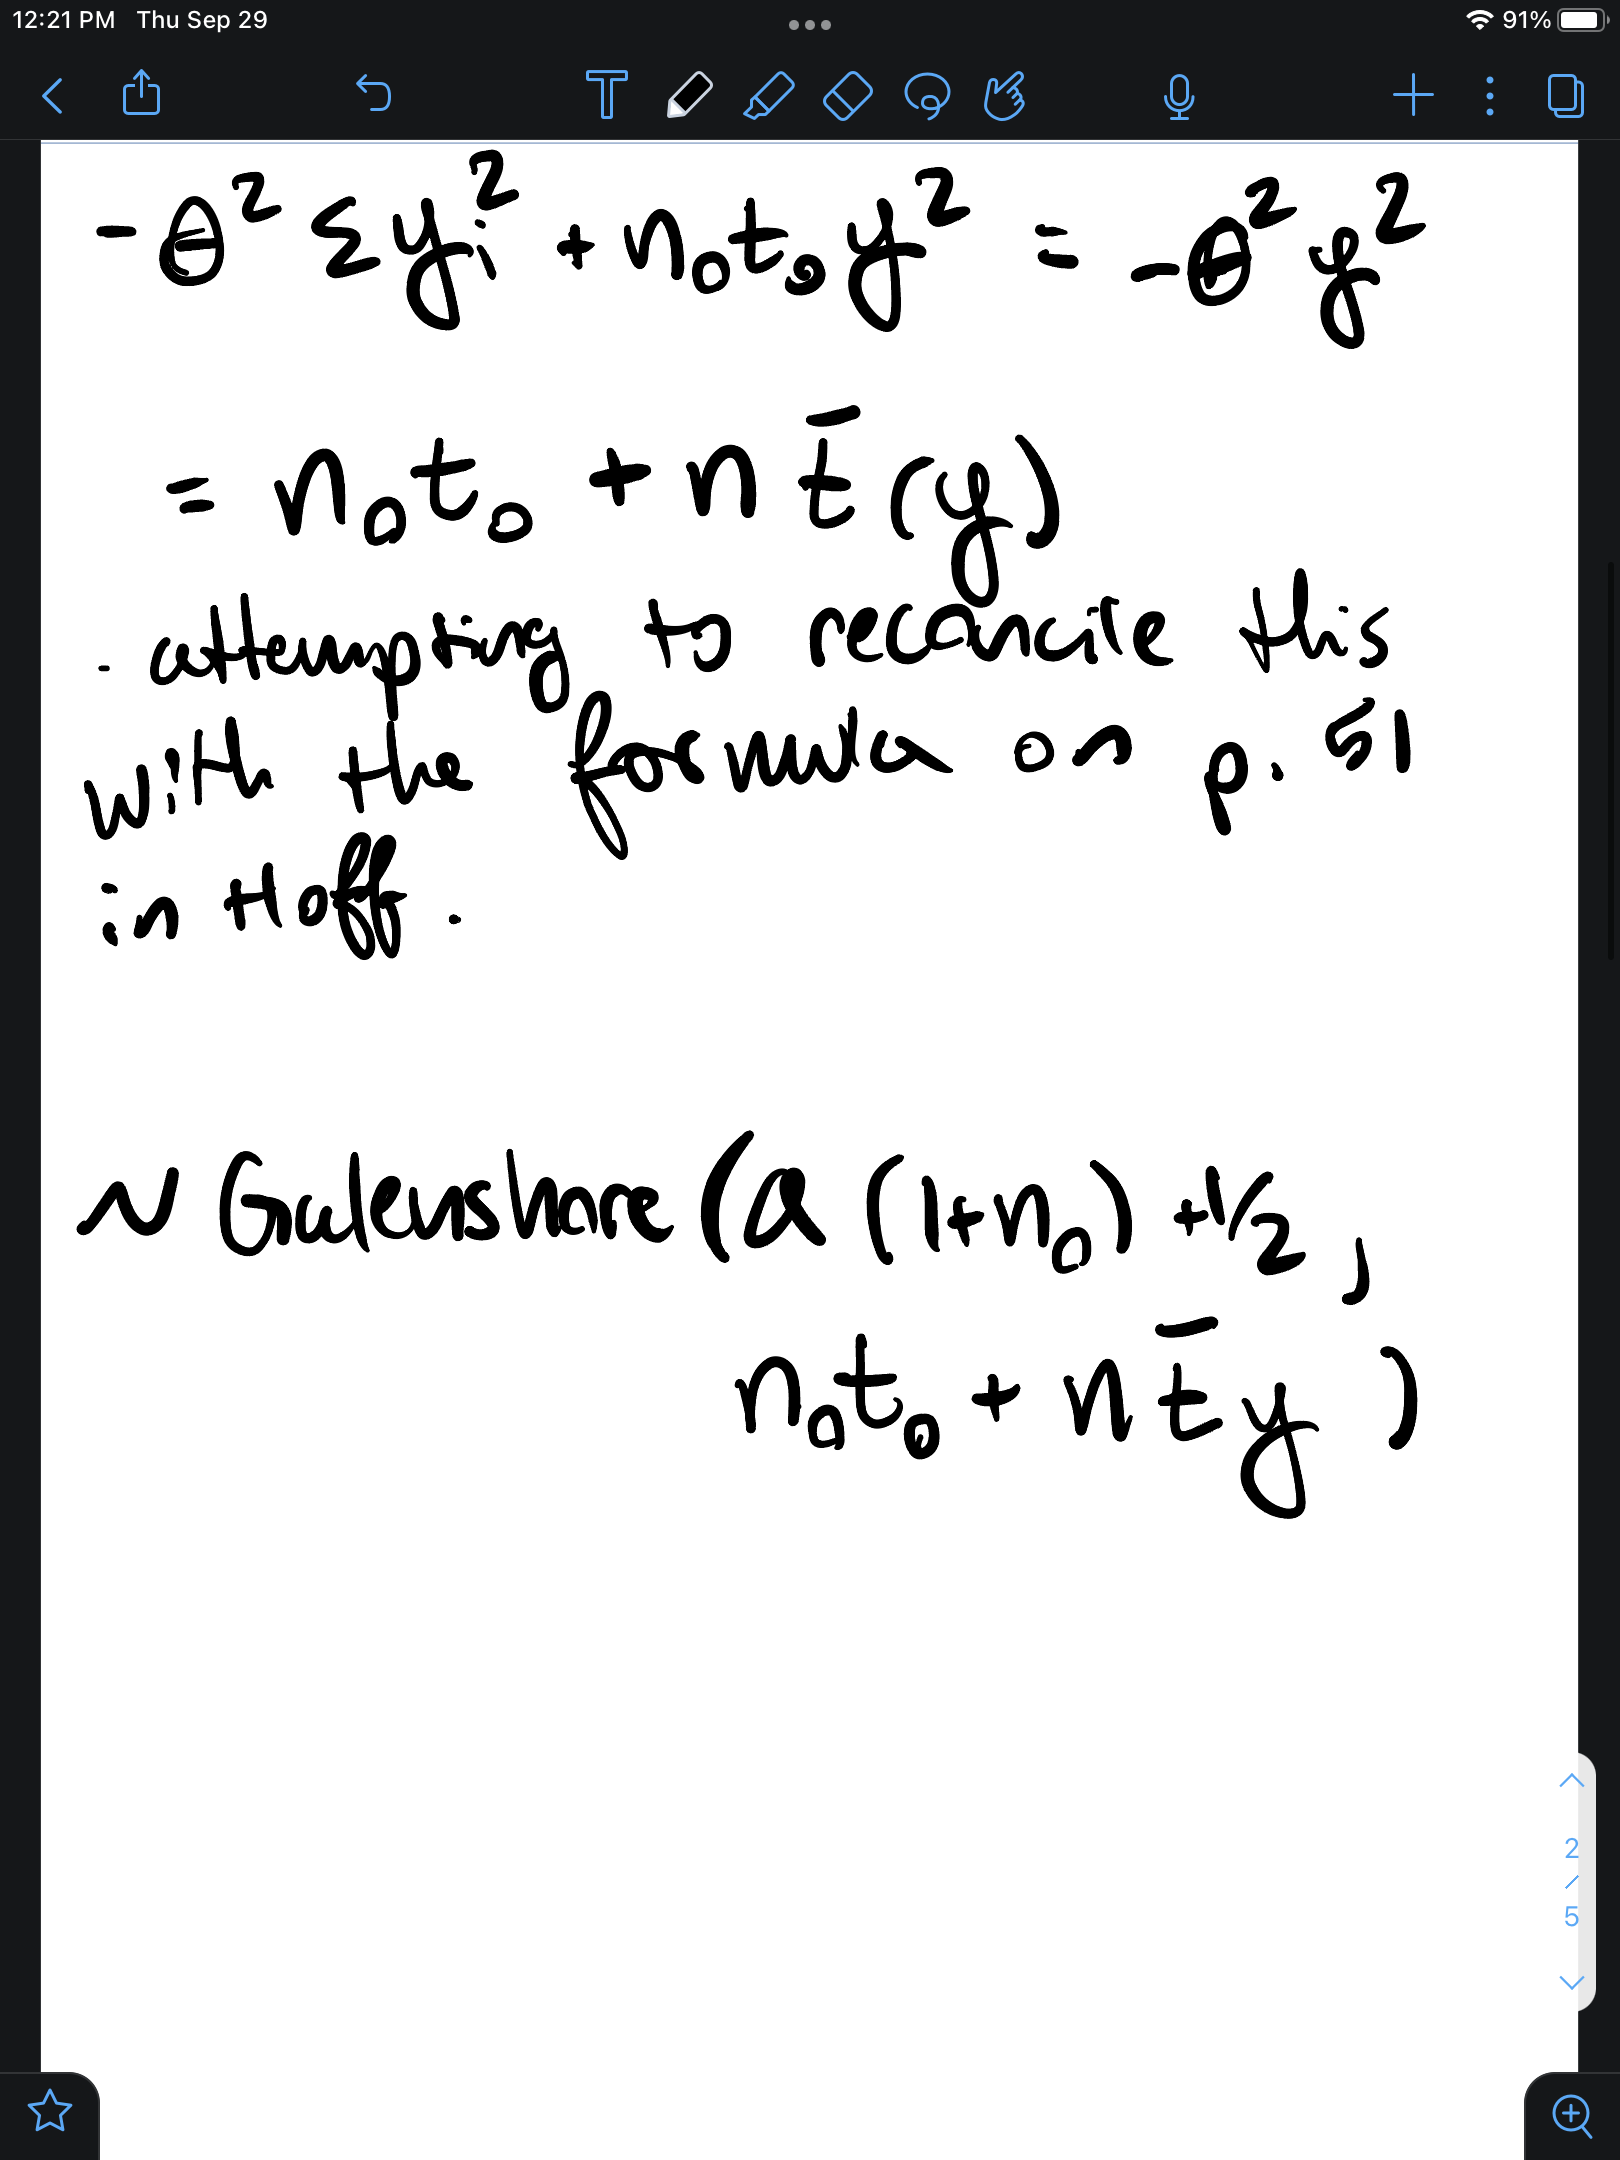 12:21 PM Thu Sep 29 91%
-θ² Σyᵢ² + n₀t₀y² = -θ²y²
= n₀t₀ + n t̄(y)
· attempting to reconcile this
with the formula on p. 51
in Hoff.
~ Galenshore (a (1+n₀) +1/2 ,
n₀t₀ + n t̄y )
2
/
5